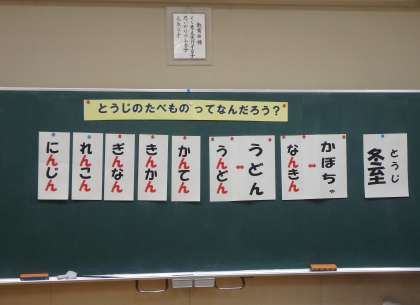 とうじのたべもの って なんだろう？
とうじ
冬至
かぼちゃ
↔
なんきん
うどん
↔
うんどん
かんてん
きんかん
ぎんなん
れんこん
にんじん